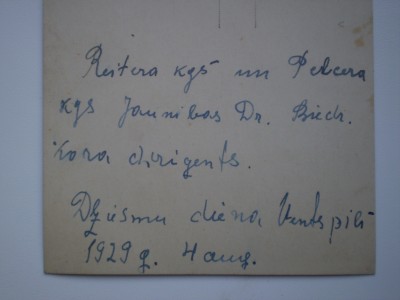 Reitera kgs un Petcera
kgs Jaunibas Dr. Biedr.
Kora dirigents.
Dziesmu diena Ventspilī
1929 g. 4 aug.